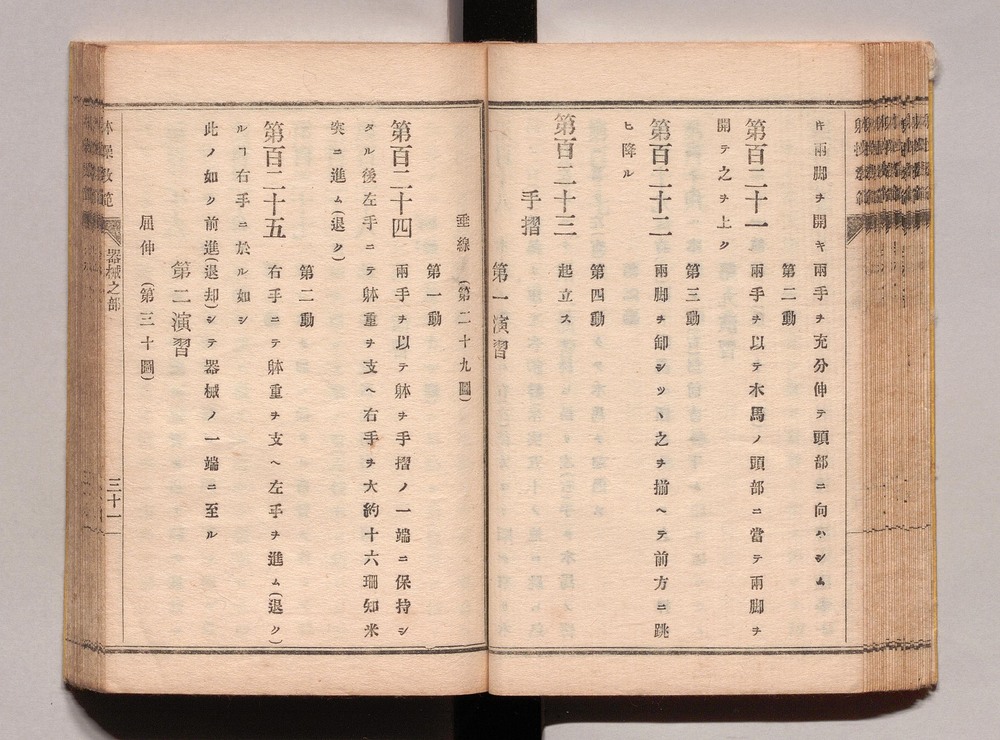 キ兩脚ヲ開キ兩手ヲ充分伸テ頭部ニ向ハシム
第二動
第百二十一 兩手ヲ以テ木馬ノ頭部ニ當テ兩脚ヲ
開テ之ヲ上ク
第三動
第百二十二 兩脚ヲ卸シツヽ之ヲ揃ヘテ前方ニ跳
ヒ降ル
第四動
第百二十三 起立ス
手摺
第一演習
垂線(第二十九圖)
第一動
第百二十四 兩手ヲ以テ躰ヲ手摺ノ一端ニ保持シ
タル後左手ニテ躰重ヲ支ヘ右手ヲ大約十六珊知米
突ニ進ム(退ク)
第二動
第百二十五 右手ニテ躰重ヲ支ヘ左手ヲ進ム(退ク)
ルヿ右手ニ於ル如シ
此ノ如ク前進(退却)シテ器械ノ一端ニ至ル
第二演習
屈伸(第三十圖)
体操教範 器械之部 三十一